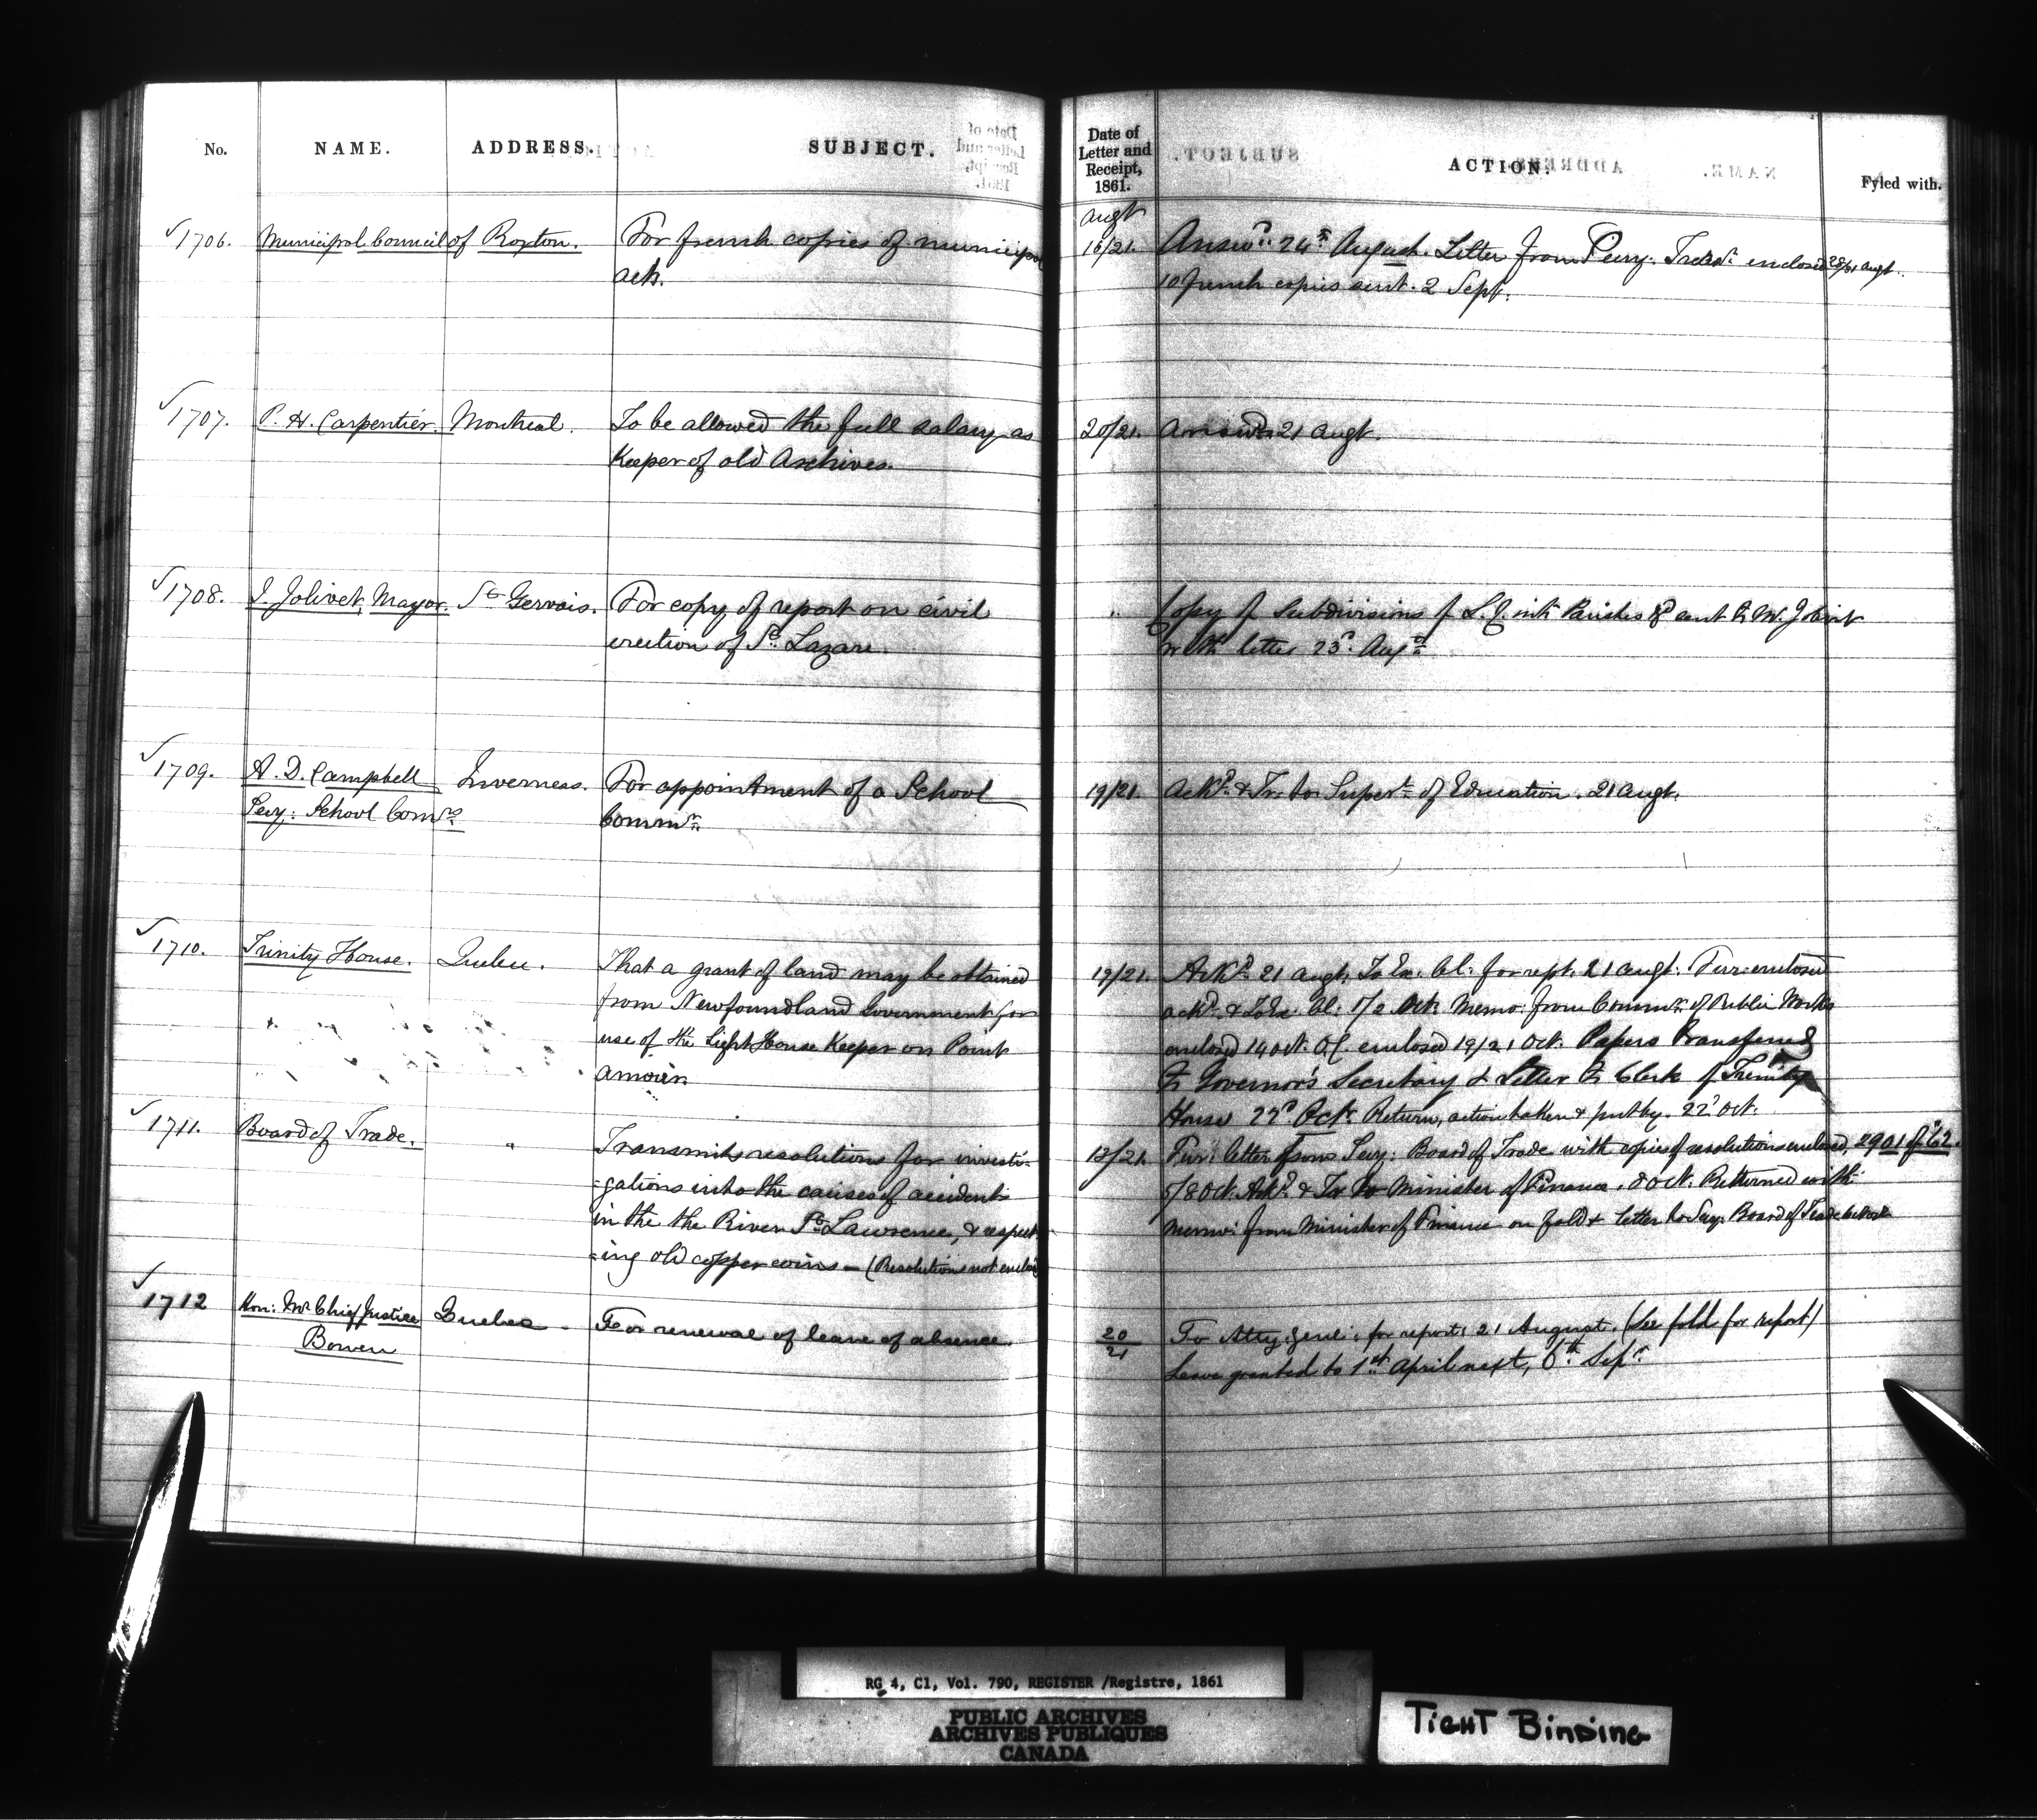 No. NAME. ADDRESS. SUBJECT.
Date of Letter and Receipt, 1861. ACTION. Fyled with.
1706. Municipal Council of Roxton. For french copies of municipal
act.
Augt
16/21. Answd. 24th August. Letter from Secy. enclosed 28/31 Augt.
10 french copies sent. 2 Sept.
1707. P. H. Carpentier. Montreal. To be allowed the full salary as
Keeper of old Archives.
20/21. Answd. 21 Augt.
1708. J. Jolivet, Mayor. St Gervais. For copy of report on civil
erection of St. Lazare.
" Copy of Subdivisions of L. C. into Parishes &c sent to M. Jolivet
with letter 23d. Augt
1709. A. D. Campbell Inverness. For appointment of a School
Secy: School Comrs. Commr.
19/21. Ackd. & Tr. to Supert. of Education. 21 Augt.
1710. Trinity House. Quebec. That a grant of land may be obtained
from Newfoundland Government for
use of the Light House Keeper on Point
Amour.
19/21. Ackd. 21 Augt. To Ex. Cl: for rept. 21 Augt. Fur: enclosed
ackd. & To Ex. Cl: 1/2 Oct. Memo: from Commr. of Public Works
enclosed 14 Oct. O.C. enclosed 19/21 Oct. Papers transferred
to Governor's Secretary & Letter to Clerk of Trinity
House 22d Oct. Return, action taken & put by. 22d Oct.
1711. Board of Trade. " Transmits resolutions for investi-
-gations into the causes of accidents
in the the River St. Lawrence, & respect-
-ing old copper coins — (Resolutions not enclosed
13/21. Fur: letter from Secy: Board of Trade with copies of resolutions enclosed, 2901 of '62.
5/8 Oct. Ackd. & Tr. to Minister of Finance. 8 Oct. Returned with
memo: from Minister of Finance on fold & letter to Secy. Board of Trade
1712 Hon: Mr. Chief Justice Quebec - For renewal of leave of absence.
Bowen
20/21 To Atty. Genl: for report: 21 August. (See fold for report)
Leave granted to 1st April next, 6th. Sepr.
RG 4, C1, Vol. 790, REGISTER /Registre, 1861
PUBLIC ARCHIVES
ARCHIVES PUBLIQUES
CANADA
TIGHT BINDING